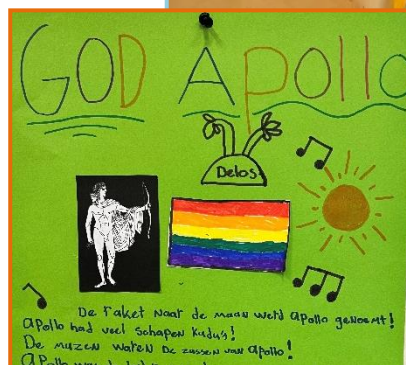 GOD Apollo
Delos
De raket naar de maan werd apollo genoemt!
apollo had veel schapen kudu's!
De muzen waren De zussen van apollo!
apollo